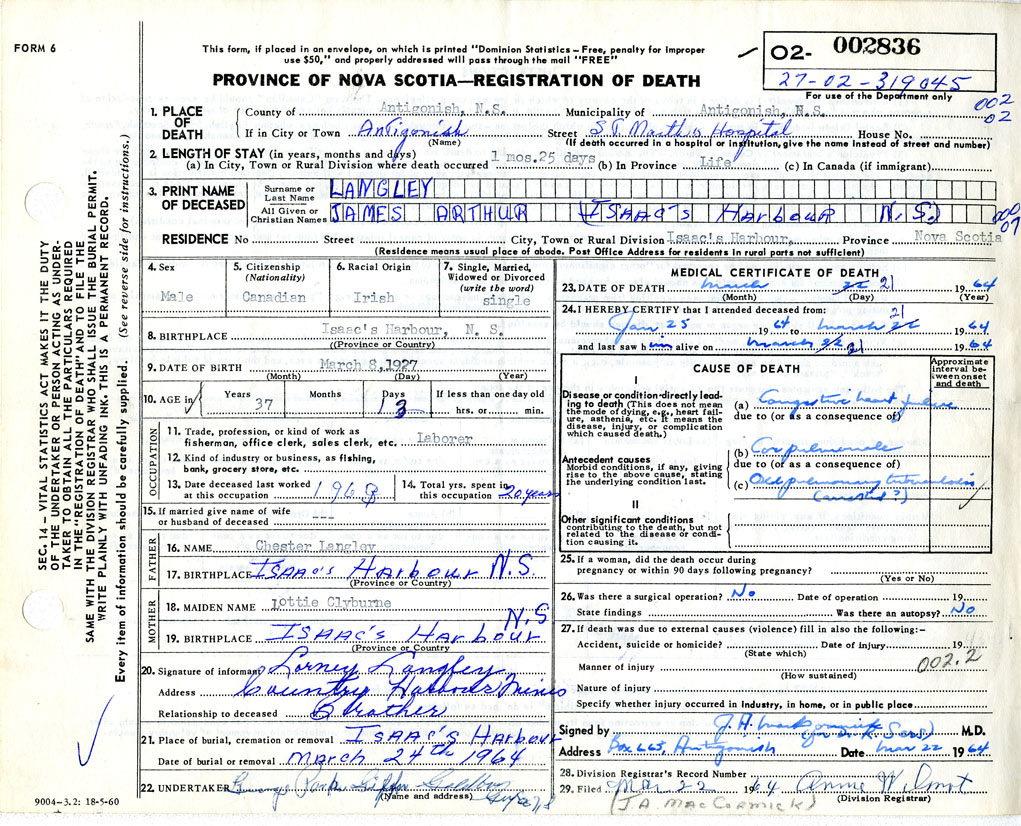 FORM 6
This form, if placed in an envelope, on which is printed "Dominion Statistics – Free, penalty for improper
use $50," and properly addressed will pass through the mail "FREE"
PROVINCE OF NOVA SCOTIA—REGISTRATION OF DEATH
02- 002836
27-02-319045
For use of the Department only
002
02
1. PLACE OF DEATH
County of Antigonish, N.S. Municipality of Antigonish, N.S.
If in City or Town Antigonish Street ST. Martha's Hospital House No.
(Name) (If death occurred in a hospital or institution, give the name instead of street and number)
2. LENGTH OF STAY (in years, months and days)
(a) In City, Town or Rural Division where death occurred 1 mos. 25 days (b) In Province Life (c) In Canada (if immigrant)
3. PRINT NAME OF DECEASED
Surname or Last Name LANGLEY
All Given or Christian Names JAMES ARTHUR (ISAAC'S HARBOUR N.S.)
000
07
RESIDENCE No Street City, Town or Rural Division Isaac's Harbour, Province Nova Scotia
(Residence means usual place of abode. Post Office Address for residents in rural parts not sufficient)
4. Sex Male
5. Citizenship (Nationality) Canadian
6. Racial Origin Irish
7. Single, Married, Widowed or Divorced (write the word) single
8. BIRTHPLACE Isaac's Harbour, N. S.
(Province or Country)
9. DATE OF BIRTH March 8, 1927
(Month) (Day) (Year)
10. AGE in Years 37 Months Days 13 If less than one day old hrs. or min.
OCCUPATION
11. Trade, profession, or kind of work as
fisherman, office clerk, sales clerk, etc. Laborer
12. Kind of industry or business, as fishing,
bank, grocery store, etc.
13. Date deceased last worked
at this occupation
14. Total yrs. spent in
this occupation 20 years
15. If married give name of wife
or husband of deceased ---
FATHER
16. NAME Chester Langley
17. BIRTHPLACE ISAAC'S HARBOUR N.S.
(Province or Country)
MOTHER
18. MAIDEN NAME Lottie Clyburne
19. BIRTHPLACE ISAAC'S HARBOUR N.S
(Province or Country)
20. Signature of informant Lorney Langley
Address Country Harbour Mines
Relationship to deceased Brother
21. Place of burial, cremation or removal ISAAC'S HARBOUR
Date of burial or removal MARCH 24th 1964
22. UNDERTAKER
(Name and address)
MEDICAL CERTIFICATE OF DEATH
23. DATE OF DEATH March 22 21 1964
(Month) (Day) (Year)
24. I HEREBY CERTIFY that I attended deceased from:
Jan 25 1964 to March 22 21 1964
and last saw him alive on March 22 21 1964
CAUSE OF DEATH
Approximate interval between onset and death
I
Disease or condition directly leading to death (This does not mean the mode of dying, e.g., heart failure, asthenia, etc. It means the disease, injury, or complication which caused death.)
(a) Congestive heart failure
due to (or as a consequence of)
Antecedent causes
Morbid conditions, if any, giving rise to the above cause, stating the underlying condition last.
(b) Cor pulmonale
due to (or as a consequence of)
(c) Old pulmonary tuberculosis
(arrested?)
II
Other significant conditions
contributing to the death, but not related to the disease or condition causing it.
25. If a woman, did the death occur during
pregnancy or within 90 days following pregnancy?
(Yes or No)
26. Was there a surgical operation? No Date of operation 19
State findings Was there an autopsy? No
27. If death was due to external causes (violence) fill in also the following:–
Accident, suicide or homicide? Date of injury 19
(State which)
002.2
Manner of injury
(How sustained)
Nature of injury
Specify whether injury occurred in industry, in home, or in public place
Signed by J. A. MacCormick (for Dr. K. Sers) M.D.
Address Box 665, Antigonish Date Mar 22 1964
28. Division Registrar's Record Number
29. Filed Mar 22 1964 Annie Wilmot
(J.A. MACCORMICK) (Division Registrar)
9004–3.2: 18-5-60
SEC. 14 – VITAL STATISTICS ACT MAKES IT THE DUTY
OF THE UNDERTAKER OR PERSON ACTING AS UNDERTAKER
TO OBTAIN ALL THE PARTICULARS REQUIRED
IN THE "REGISTRATION OF DEATH" AND TO FILE THE
SAME WITH THE DIVISION REGISTRAR WHO SHALL ISSUE THE BURIAL PERMIT.
WRITE PLAINLY WITH UNFADING INK. THIS IS A PERMANENT RECORD.
Every item of information should be carefully supplied. (See reverse side for instructions.)